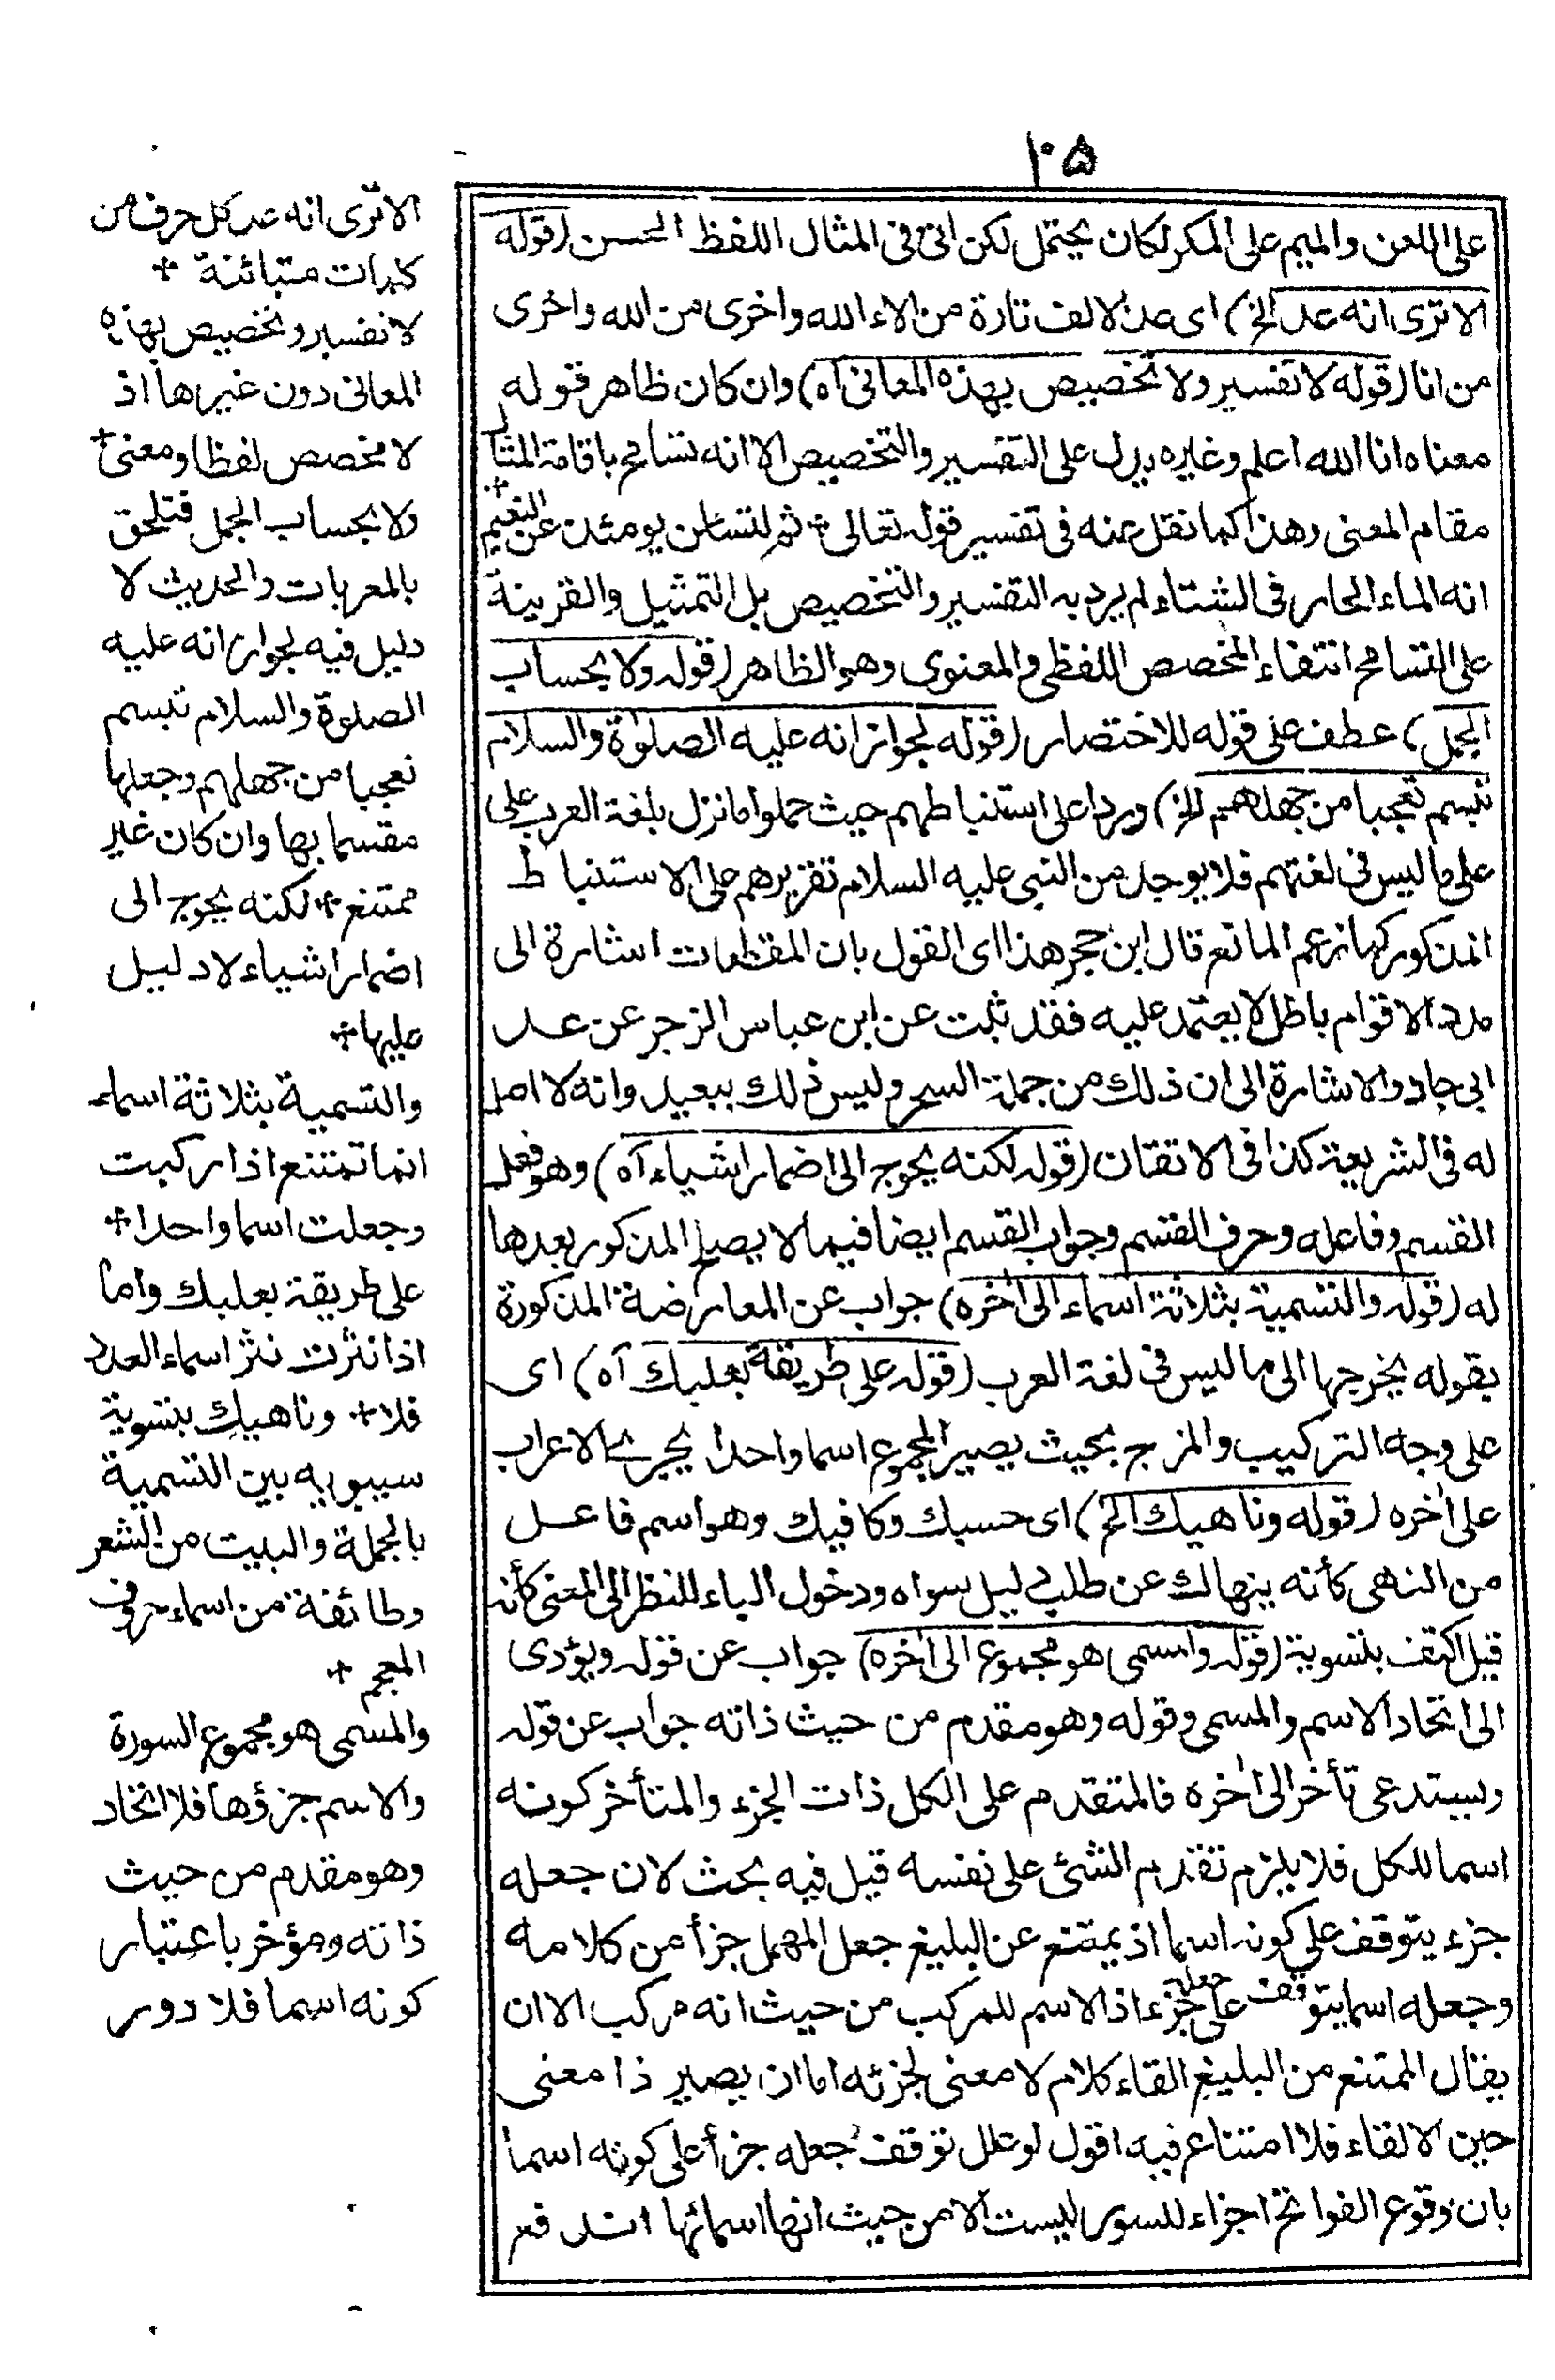 ١٠٥
على اللعن والميم على المكر لكان يحتمل لكن اتى فى المثال اللفظ الحسن (قوله
الا ترى انه عد الخ) اى عد الالف تارة من الاء الله واخرى من الله واخرى
من انا (قوله لا تفسير ولا تخصيص بهذه المعانى آه) وان كان ظاهر قوله
معناه انا الله اعلم وغيره يدل على التفسير والتخصيص الا انه تسامح باقامة المثال
مقام المعنى وهذا كما نقل عنه فى تفسير قوله تعالى + ثم لتسئلن يومئذ عن النعيم +
انه الماء الحار فى الشتاء لم يرد به التفسير والتخصيص بل التمثيل والقرينة
على التسامح انتفاء المخصص اللفظى والمعنوى وهو الظاهر (قوله ولا بحساب
الجمل) عطف على قوله للاختصار (قوله لجواز انه عليه الصلوة والسلام
تبسم تعجبا من جهلهم الخ) وردا على استنباطهم حيث حملوا ما نزل بلغة العرب على
على ما ليس فى لغتهم فلا يوجد من النبى عليه السلام تقريرهم على الاستنباط
المذكور كما زعم المانع قال ابن حجر هذا اى القول بان المقطعات اشارة الى
مدد الاقوام باطل لا يعتمد عليه فقد ثبت عن ابن عباس الزجر عن عد
ابى جاد والاشارة الى ان ذلك من جملة السحر وليس ذلك ببعيد وانه لا اصل
له فى الشريعة كذا فى الاتقان (قوله لكنه يحوج الى اضمار اشياء آه) وهو فعل
القسم وفاعله وحرف القسم وجواب القسم ايضا فيما لا يصلح المذكور بعدها
له (قوله والتسمية بثلاثة اسماء الى اخره) جواب عن المعارضة المذكورة
بقوله يخرجها الى ما ليس فى لغة العرب (قوله على طريقة بعلبك آه) اى
على وجه التركيب والمزج بحيث يصير المجموع اسما واحدا يجرى الاعراب
على اخره (قوله وناهيك الخ) اى حسبك وكافيك وهو اسم فاعل
من النهى كأنه ينهاك عن طلب دليل سواه ودخول الباء للنظر الى المعنى كأنه
قيل اكتف بتسوية (قوله والمسمى هو مجموع الى اخره) جواب عن قوله ويؤدى
الى اتحاد الاسم والمسمى وقوله وهو مقدم من حيث ذاته جواب عن قوله
ويستدعى تأخر الى اخره فالمتقدم على الكل ذات الجزء والمتأخر كونه
اسما للكل فلا يلزم تقدم الشئ على نفسه قيل فيه بحث لان جعله
جزء يتوقف على كونه اسما اذ يمتنع عن البليغ جعل المهمل جزأ من كلامه
وجعله اسما يتوقف على جعله جزء اذ الاسم للمركب من حيث انه مركب الا ان
يقال الممتنع من البليغ القاء كلام لا معنى لجزئه اما ان يصير ذا معنى
حين الالقاء فلا امتناع فيه اقول لو علل توقف جعله جزأ على كونه اسما
بان وقوع الفواتح اجزاء للسور ليست الا من حيث انها اسمائها اندفع
الا ترى انه عد كل حرف من
كلمات متبائنة +
لا تفسير وتخصيص بهذه
المعانى دون غيرها اذ
لا مخصص لفظا ومعنى +
ولا بحساب الجمل فتلحق
بالمعربات والحديث لا
دليل فيه لجواز انه عليه
الصلوة والسلام تبسم
تعجبا من جهلهم وجعلها
مقسما بها وان كان غير
ممتنع + لكنه يحوج الى
اضمار اشياء لا دليل
عليها +
والتسمية بثلاثة اسماء
انما تمتنع اذا ركبت
وجعلت اسما واحدا +
على طريقة بعلبك واما
اذا نثرت نثر اسماء العدد
فلا + وناهيك بتسوية
سيبويه بين التسمية
بالجملة والبيت من الشعر
وطائفة من اسماء حروف
المعجم +
والمسمى هو مجموع السورة
والاسم جزؤها فلا اتحاد
وهو مقدم من حيث
ذاته ومؤخر باعتبار
كونه اسما فلا دور